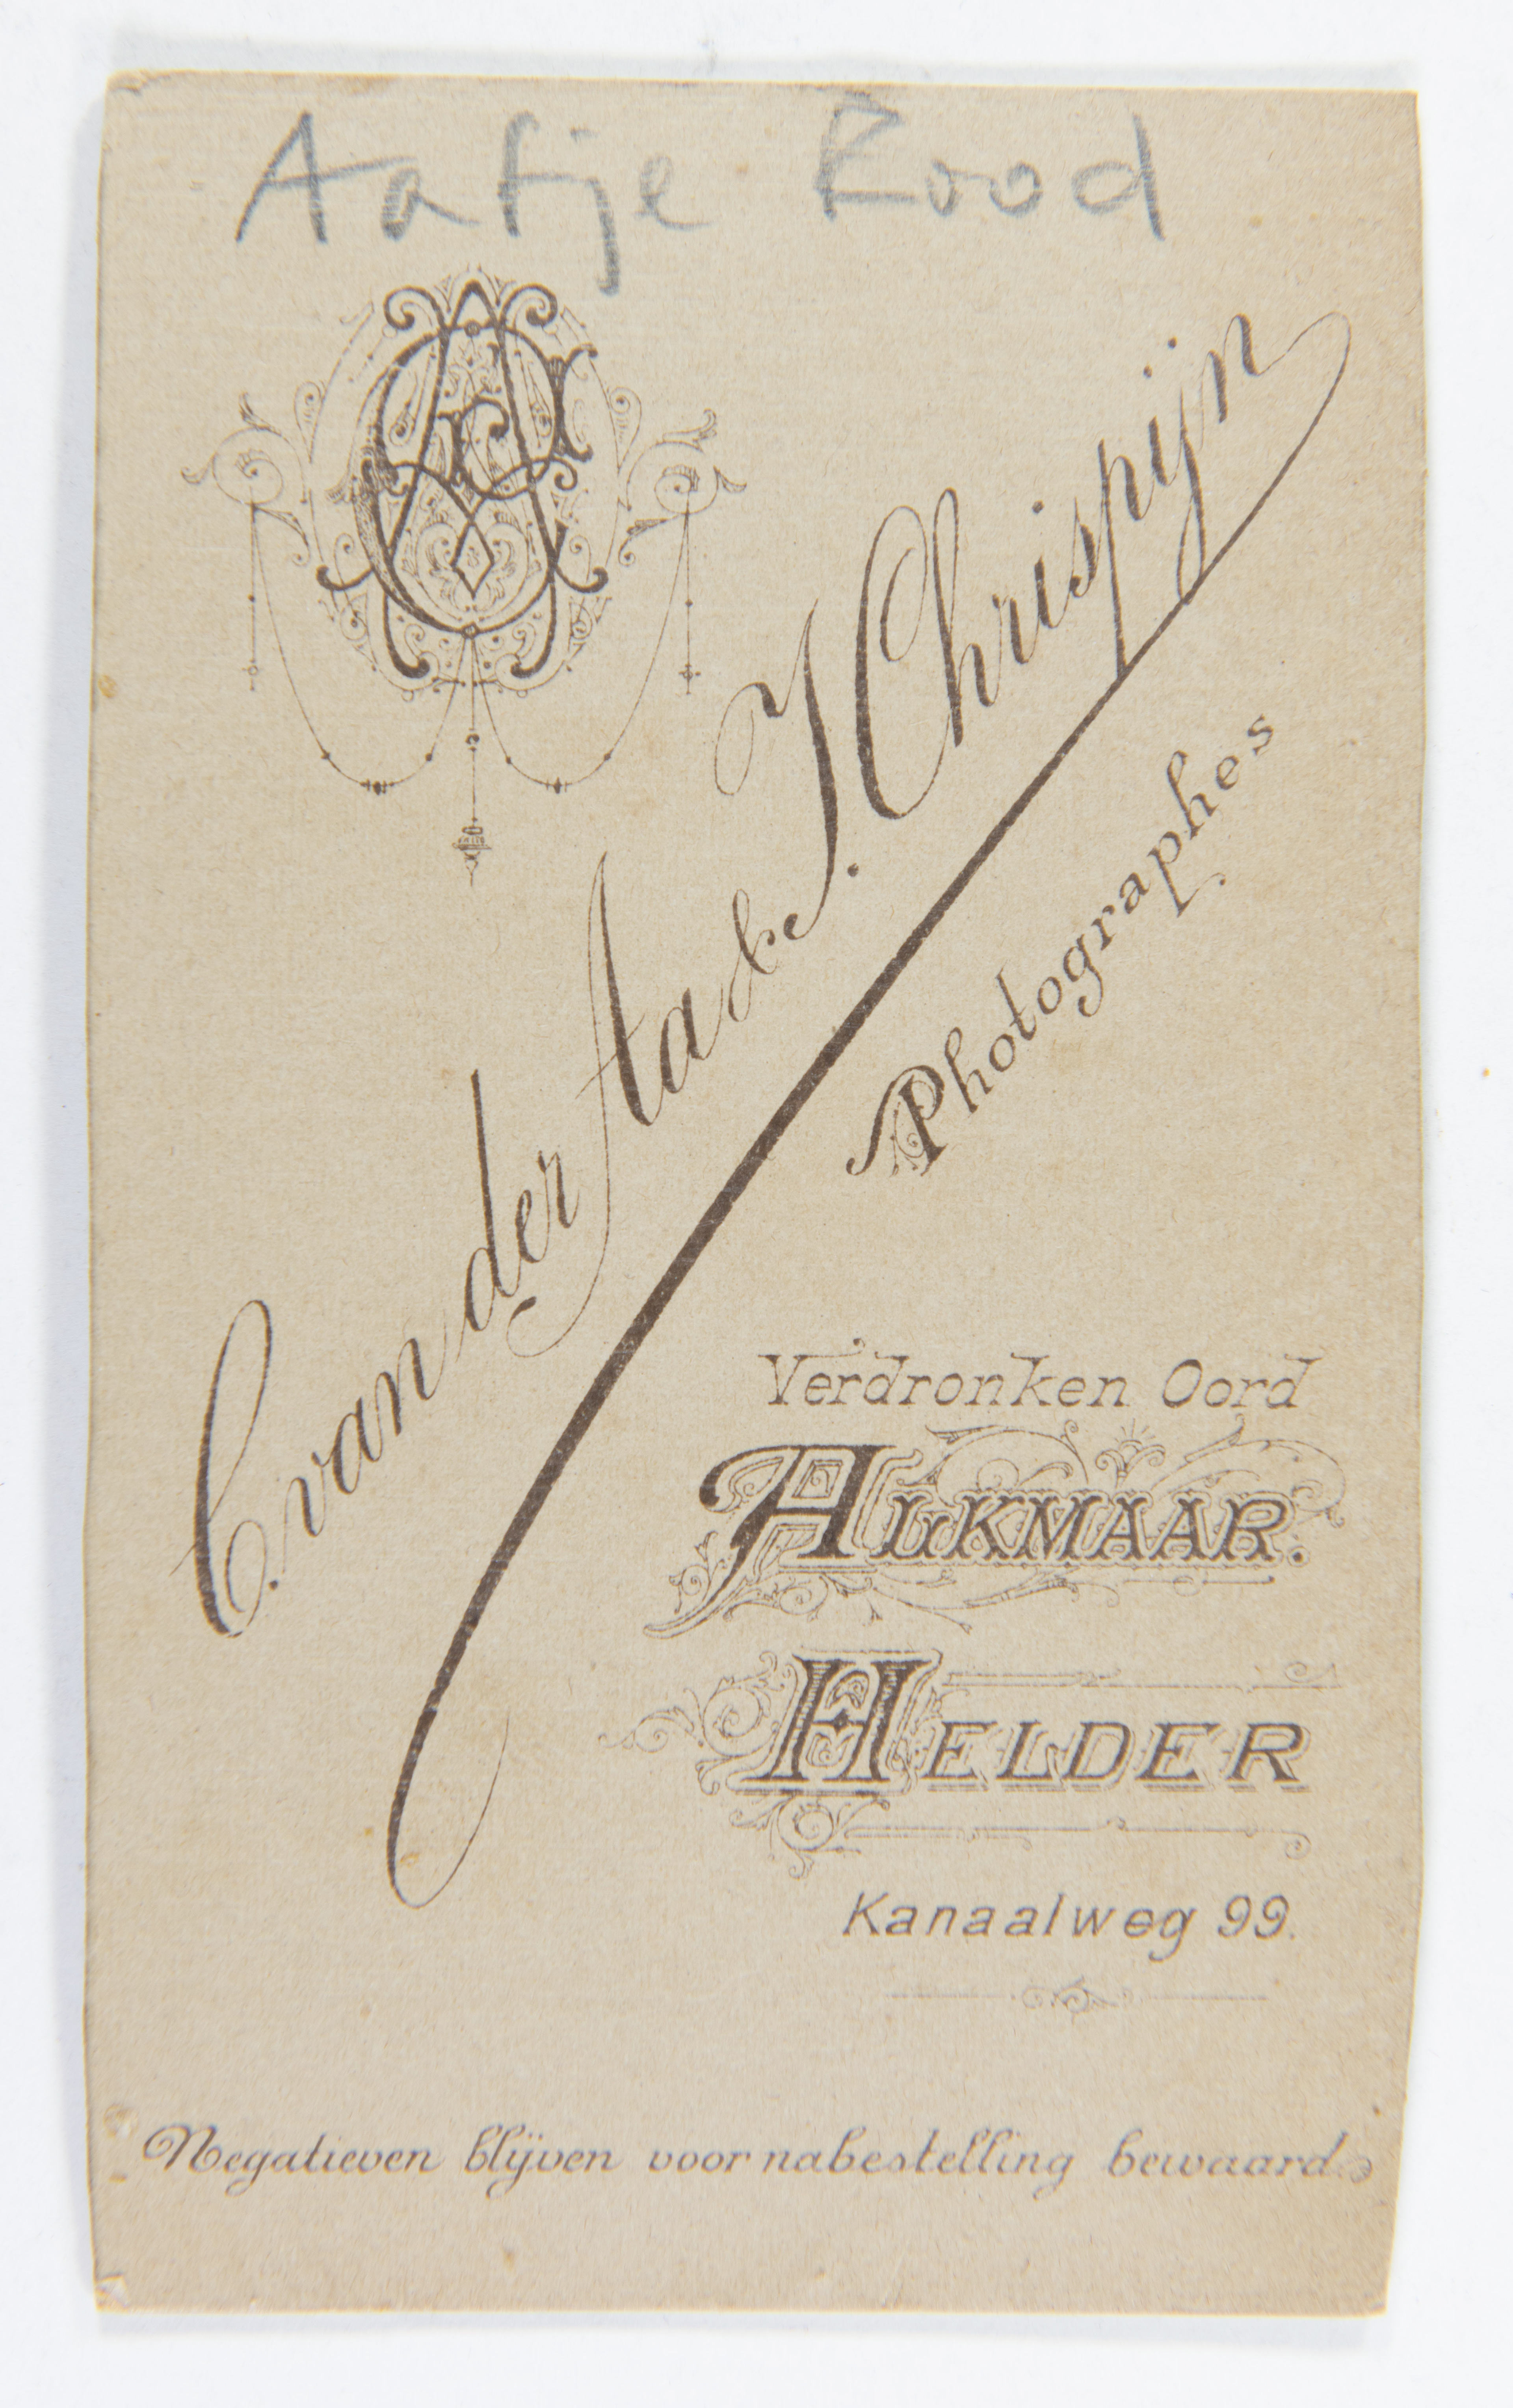 Aatje Rood
C. van der Aa & J. Chrispijn
Photographes
Verdronken Oord
ALKMAAR.
HELDER
Kanaalweg 99.
Negatieven blijven voor nabestelling bewaard.